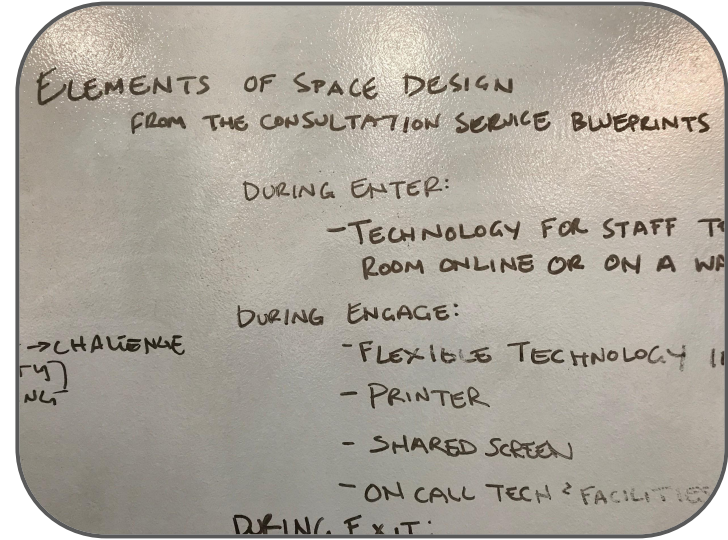 ELEMENTS OF SPACE DESIGN
FROM THE CONSULTATION SERVICE BLUEPRINTS
DURING ENTER:
-TECHNOLOGY FOR STAFF
ROOM ONLINE OR ON A
DURING ENGAGE:
-FLEXIBLE TECHNOLOGY
- PRINTER
- SHARED SCREEN
- ON CALL TECH & FACILITIES
DURING EXIT:
→CHALLENGE